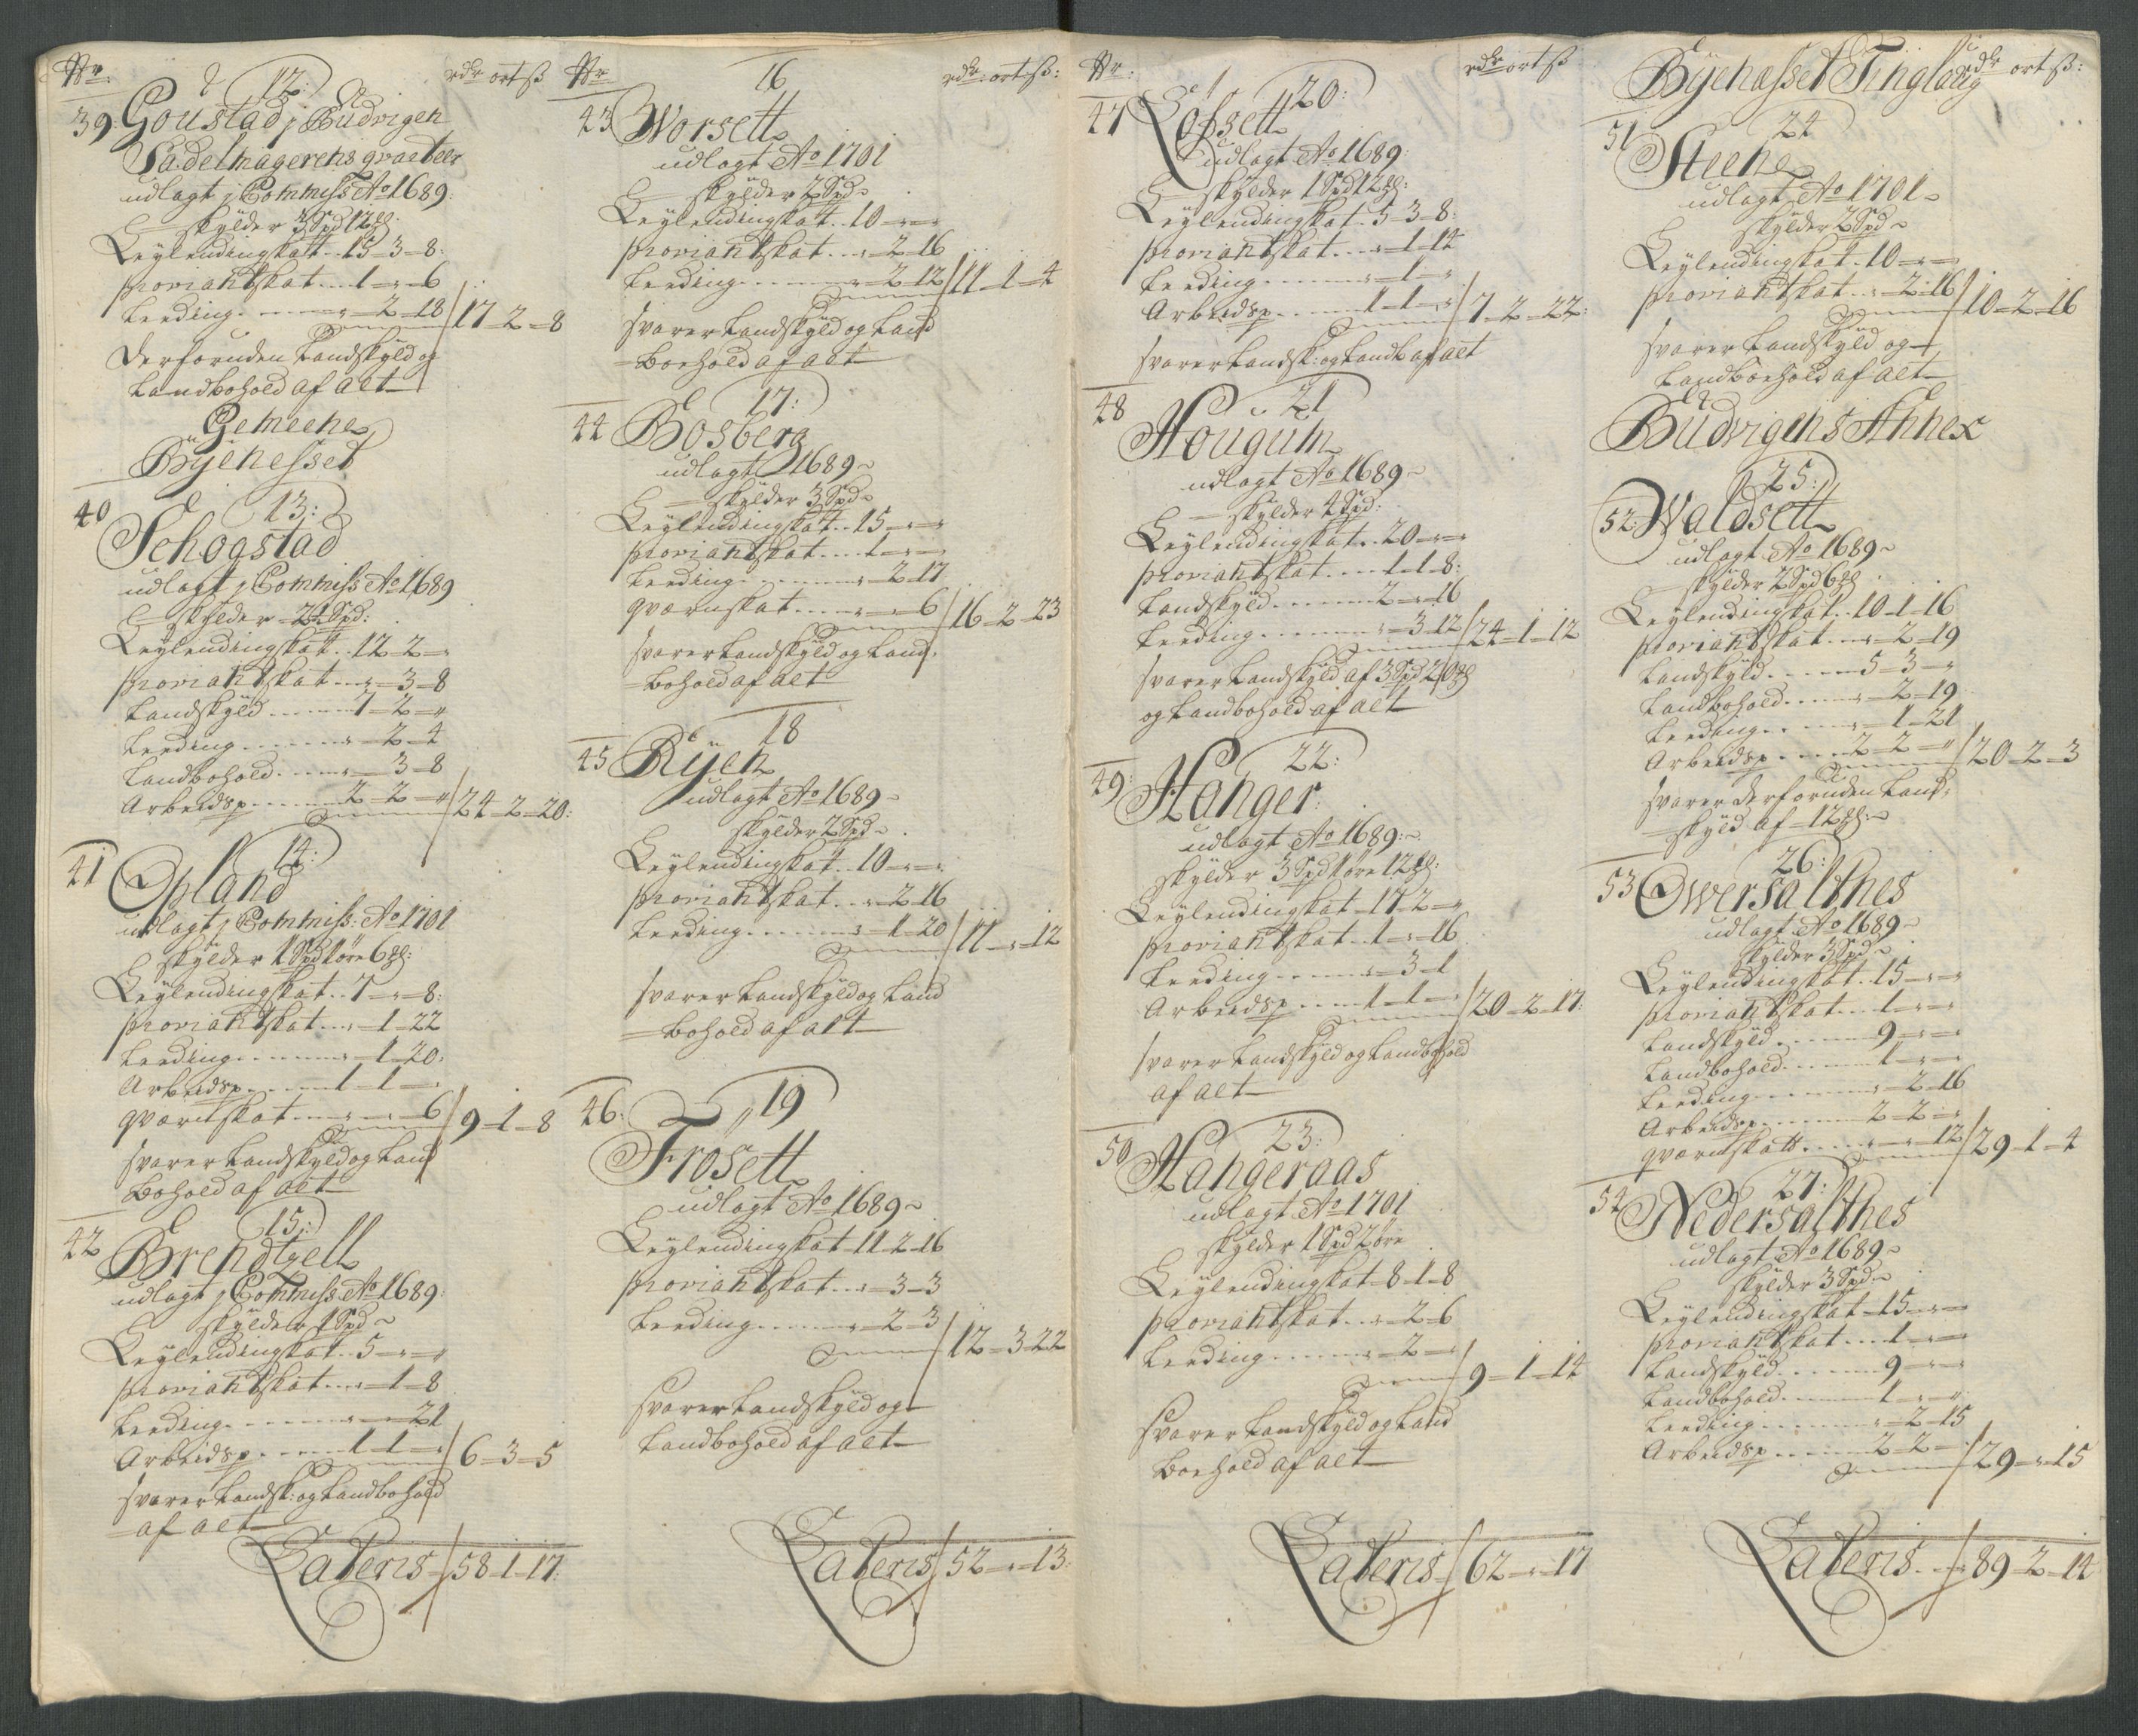 Nr. rdr ort ß
12:
39: Goustad j Budvigen
Sadelmagerens qvarteer
udlagt j Commiss Ao 1689:
skylder 3 Spd 12 ℳ:
Leÿlendingskatt .. 15-3-8:
proviantskat .... 1-"-6
Leeding ........ "-2-18 / 17-2-8
Derforuden Landskÿld og
Landbohold af alt
Gemeene
Bÿenesset
13:
40 Schogstad
udlagt j Commiss Ao 1689
skÿlder 2½ Spd:
Leÿlendingskat .. 12-2-"
proviantskat .... "-3-8
Landskÿld ....... 7-2-"
Leeding ........ "-2-4
Landbohold ..... "-3-8
Arbeidsp ....... 2-2-" / 24-2-20:
14:
41 Opland
udlagt j Commiss: Ao 1701
skÿlder 1 Spd 1 øre 6 ℳ:
Leÿlendingskat .. 7-"-8:
proviantskat ... "-1-22
Leeding ........ "-1-20:
Arbeidsp ...... 1-1-"
qværnskat ..... "-"-6 / 9-1-8
svarer Landskyld og Land
bohold af alt
15:
42 Brendtzell
udlagt j Commiss Ao 1689:
skÿlder 1 Spd
Leÿlendingskat .. 5-"-"
proviantskat .... "-1-8
Leeding ........ "-"-21
Arbeidsp ...... 1-1-" / 6-3-5
svarer Landsk: og Landbohold
af alt
Lateris / 58-1-17:
Nr rdr: ort ß:
16
43 Worsett
udlagt Ao 1701
skÿlder 2 Spd
Leÿlendingskat .. 10-"-"
proviantskat ... "-2-16
Leeding ....... "-2-12 / 11-1-4
svarer Landskÿld og Land
boehold af alt
17:
44 Bosberg
udlagt 1689
skÿlder 3 Spd
Leÿlendingskat .. 15-"-"
proviantskat .... 1-"-"
Leeding ........ "-2-17
qværnskat ..... "-"-6 / 16-2-23
svarer Landskÿld og Land,
bohold af alt
18
45 Rÿen
udlagt Ao 1689
skÿlder 2 Spd
Leÿlendingskat .. 10-"-"
proviantskat ... "-2-16
Leeding ....... "-1-20 / 11-"-12
svarer Landskÿld og Land
bohold af alt
19
46: Frøsett
udlagt Ao 1689
Leÿlendingskat 11-2-16
proviantskat ... "-3-3
Leeding ....... "-2-3 / 12-3-22
svarer Landskÿld og
Landbohold af alt
Lateris / 52-"-13:
Nr: rdr ort ß
20:
47 Løfsett
udlagt Ao 1689:
skÿlder 1 Spd 12 ℳ:
Leÿlendingskat 5-3-8:
proviantskat .... "-1-14
Leeding ........ "-1-"
Arbeidsp ...... 1-1-" / 7-2-22:
svarer Landsk: og Landb af alt
21
48 Hougum
udlagt Ao 1689
skÿlder 4 Spd:
Leÿlendingskat .. 20-"-"
proviantskat .... 1-1-8:
Landskÿld ....... 2-"-16
Leeding ........ "-3-12 / 24-1-12
svarer Landskÿld af 3 Spd 20 ℳ
og Landbohold af alt
22:
49: Hanger:
udlagt Ao 1689:
skÿlder 3 Spd 1 øre 12 ℳ:
Leÿlendingskat 17-2-"
proviantskat .. 1-"-16
Leeding ....... "-3-1
Arbeidsp .... 1-1-" / 20-2-17:
svarer Landskÿld og Landbohold
af alt
23:
50 Hangeraas
udlagt Ao 1701
skÿlder 1 Spd 2 øre
Leÿlendingskat 8-1-8
proviantskat ... "-2-6
Leeding ....... "-2-" / 9-1-14
svarer Landskÿld og Land
boehold af alt
Lateris / 62-"-17
Bÿenesset Tinglaug rdr ort ß:
24
51 Steene
udlagt Ao 1701
skÿlder 2 Spd
Leÿlendingskat .. 10-"-"
proviantskat ... "-2-16 / 10-2-16
svarer Landskÿld og
Landboehold af alt
Budvigens Annex
25:
52: Waldsett
udlagt Ao 1689
skÿlder 2 Spd 6 ℳ
Leÿlendingskat .. 10-1-16
proviantskat .... "-2-19
Landskÿld ...... 5-3-"
Landbohold ..... "-2-19
Leeding ....... "-1-21
Arbeidsp ..... 2-2-" / 20-2-3
svarer derforuden Land,
skÿld af 12 ℳ:
26:
53 Owersalthes
udlagt Ao 1689
skÿlder 3 Spd
Leÿlendingskat .. 15-"-"
proviantskat .... 1-"-"
Landskÿld ...... 9-"-"
Landbohold ..... 1-"-"
Leeding ........ "-2-16
Arbeidsp ....... 2-2-"
qværnskatt .... "-"-12 / 29-1-4
27:
54 Nedersalthes
udlagt Ao 1689
skÿlder 3 Spd
Leÿlendingskat 15-"-"
proviantskat .... 1-"-"
Landskÿld ...... 9-"-"
Landbohold ..... 1-"-"
Leeding ........ "-2-15
Arbeidsp ...... 2-2-" / 29-"-15
Lateris / 89-2-14